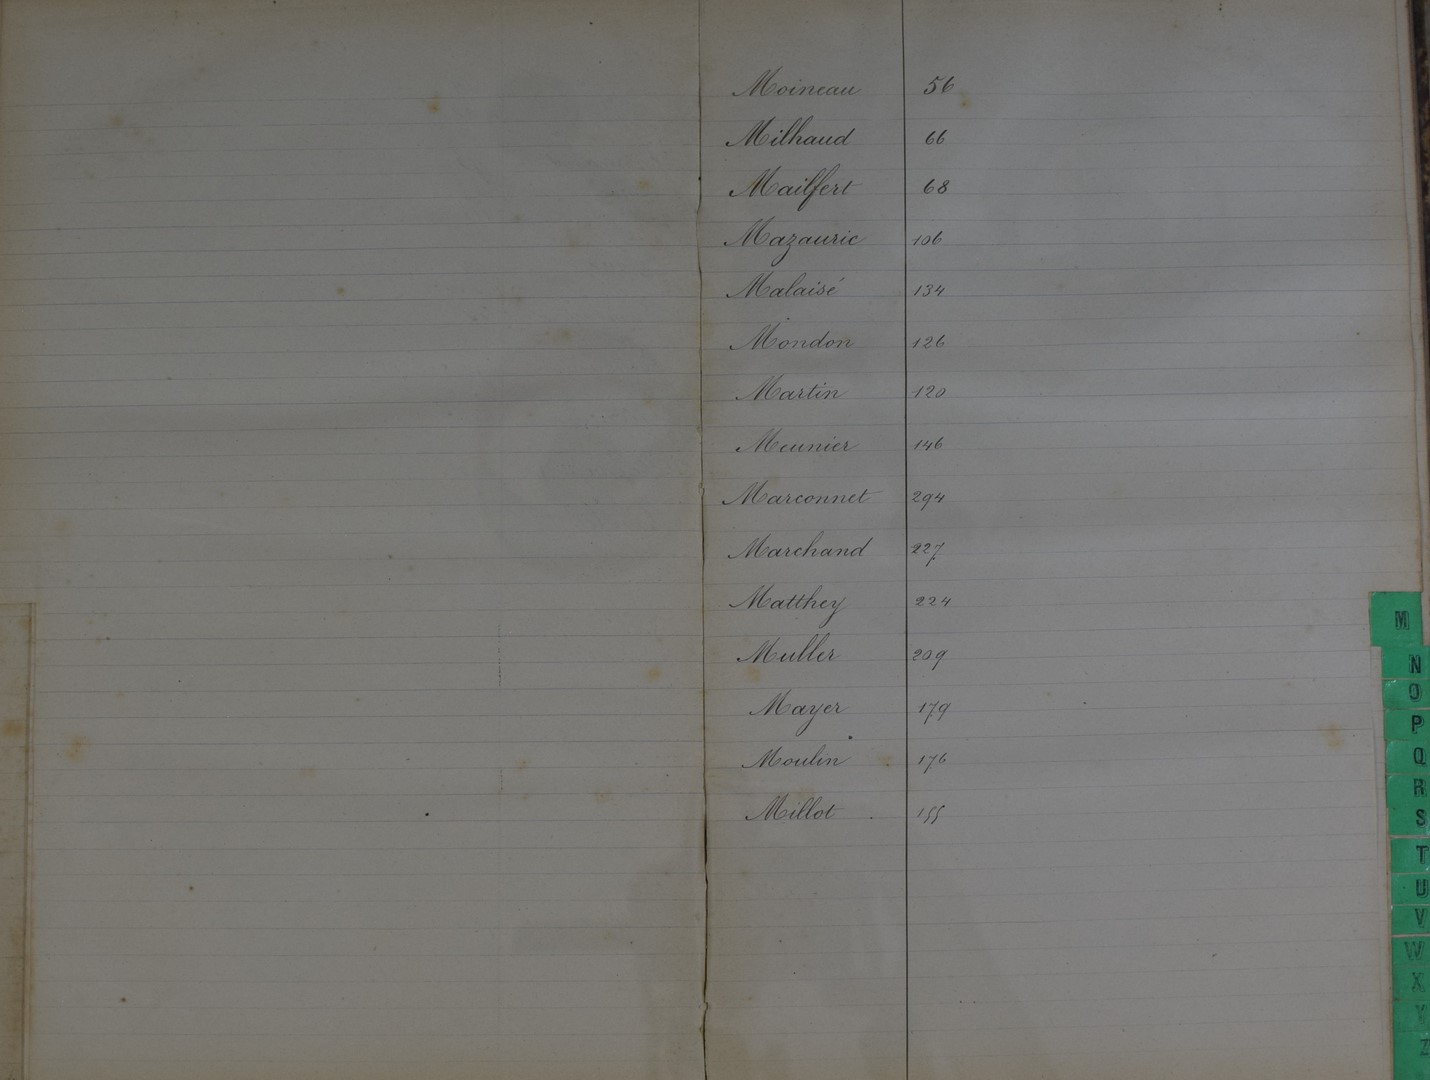 Moineau 56
Milhaud 66
Mailfert 68
Mazauric 106
Malaisé 134
Mondon 126
Martin 120
Meunier 146
Marconnet 294
Marchand 227
Matthey 224
Muller 209
Mayer 179
Moulin 176
Millot 155
M
N
O
P
Q
R
S
T
U
V
W
X
Y
Z